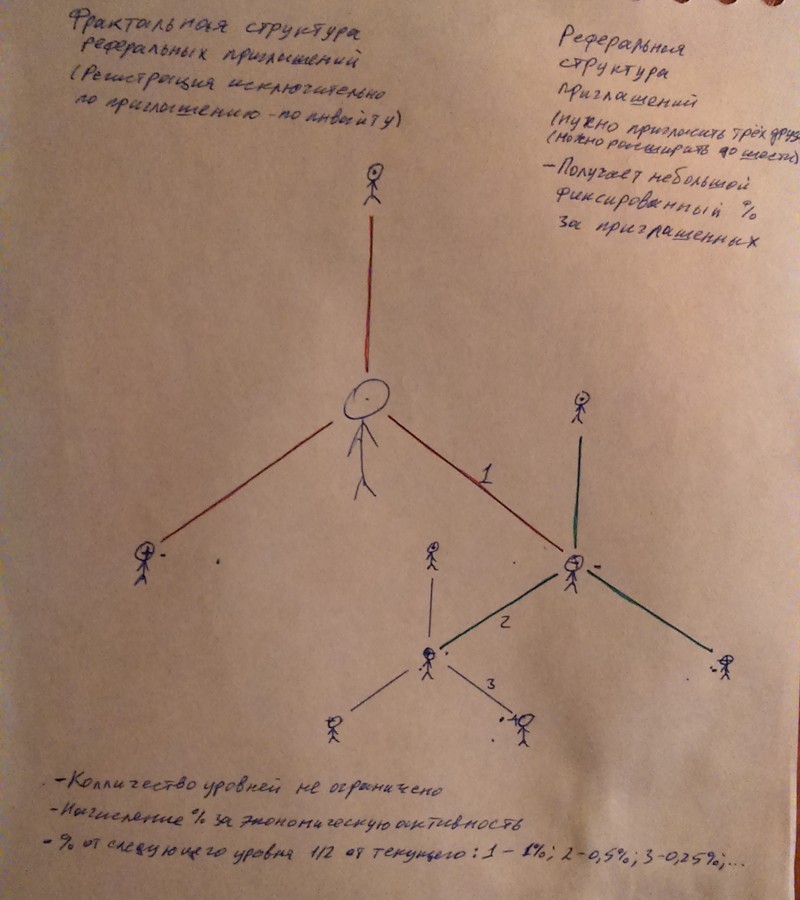 Фрактальная структура
реферальных приглашений
(Регистрация исключительно
по приглашению - по инвайту)
Реферальная
структура
приглашений
(нужно пригласить трёх друз
(можно расширить до шести)
- Получает небольшой
фиксированный %
за приглашенных
1
2
3
- Колличество уровней не ограничено
- Начисление % за экономическую активность
- % от следующего уровня 1/2 от текущего: 1 - 1%; 2 - 0,5%; 3 - 0,25%;...